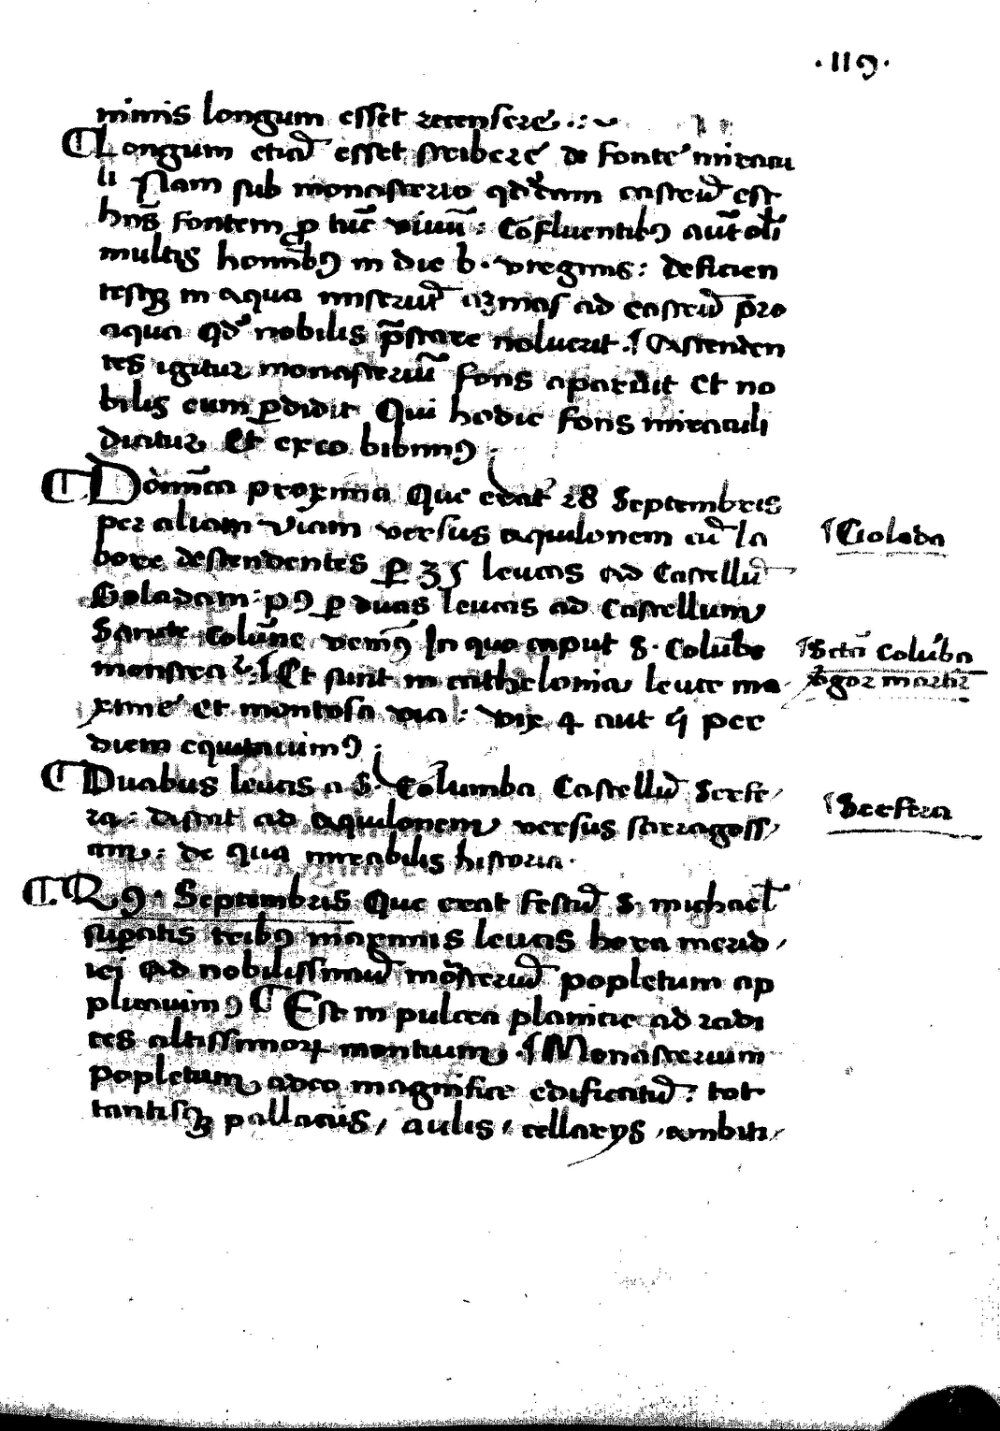 ·119·
nimis longum esset recensere .:~
¶Longum etiā esset scribere de fonte miracu
li Nam sub monasterio qđdam castrū est
hn̄s fontem ꝓ tūc viuū: Cōfluentibꝰ aūt oĩ
multis hominibꝰ in die b. virginis: deficien
tesqꝫ in aqua miserūt armos ad castrū pro
aqua qđ nobilis p̄stare noluerit .¶Ascenden
tes igitur monasteriū fons aparuit Et no
bilis eum ꝑdidit Qui hodie fons miraculi
dicitur Et ex eo bibimꝰ
¶Dom̄ca proxima Que erat 28 Septembris
per aliam viam versus aquilonem cū la
bore descendentes ꝑ 3 leucas ad Castellū
Goladam: pꝰ ꝑ duas leucas ad Castellum
Sancte Colūne venimꝰ In quo caput S. Colūbe
monstratur .¶Et sunt in cathelonia leuce ma
xime Et montosa via: vix 4 aut 5 per
diem equitauimꝰ :
¶Duabus leucis a S. Columba Castellū Serfe/
ra: distat ad aquilonem versus sarragoss/
am: de qua mirabilis historia.
¶.29. Septembris Que erat festū S. michael
suꝑatis tribꝰ maximis leucis hora merid/
iei Ad nobilissimū mōsteriū popletum ap
plicuimꝰ ¶Est in pulcra planicie ad radi
ces altissimorꝝ montium .¶Monasterium
popletum adeo magnifice edificatū: tot
tantisqꝫ pallaciis, aulis, cellarys, ambiti/
¶Ciolada
¶Sctā Colūba
v̄go et martir
¶Serfera